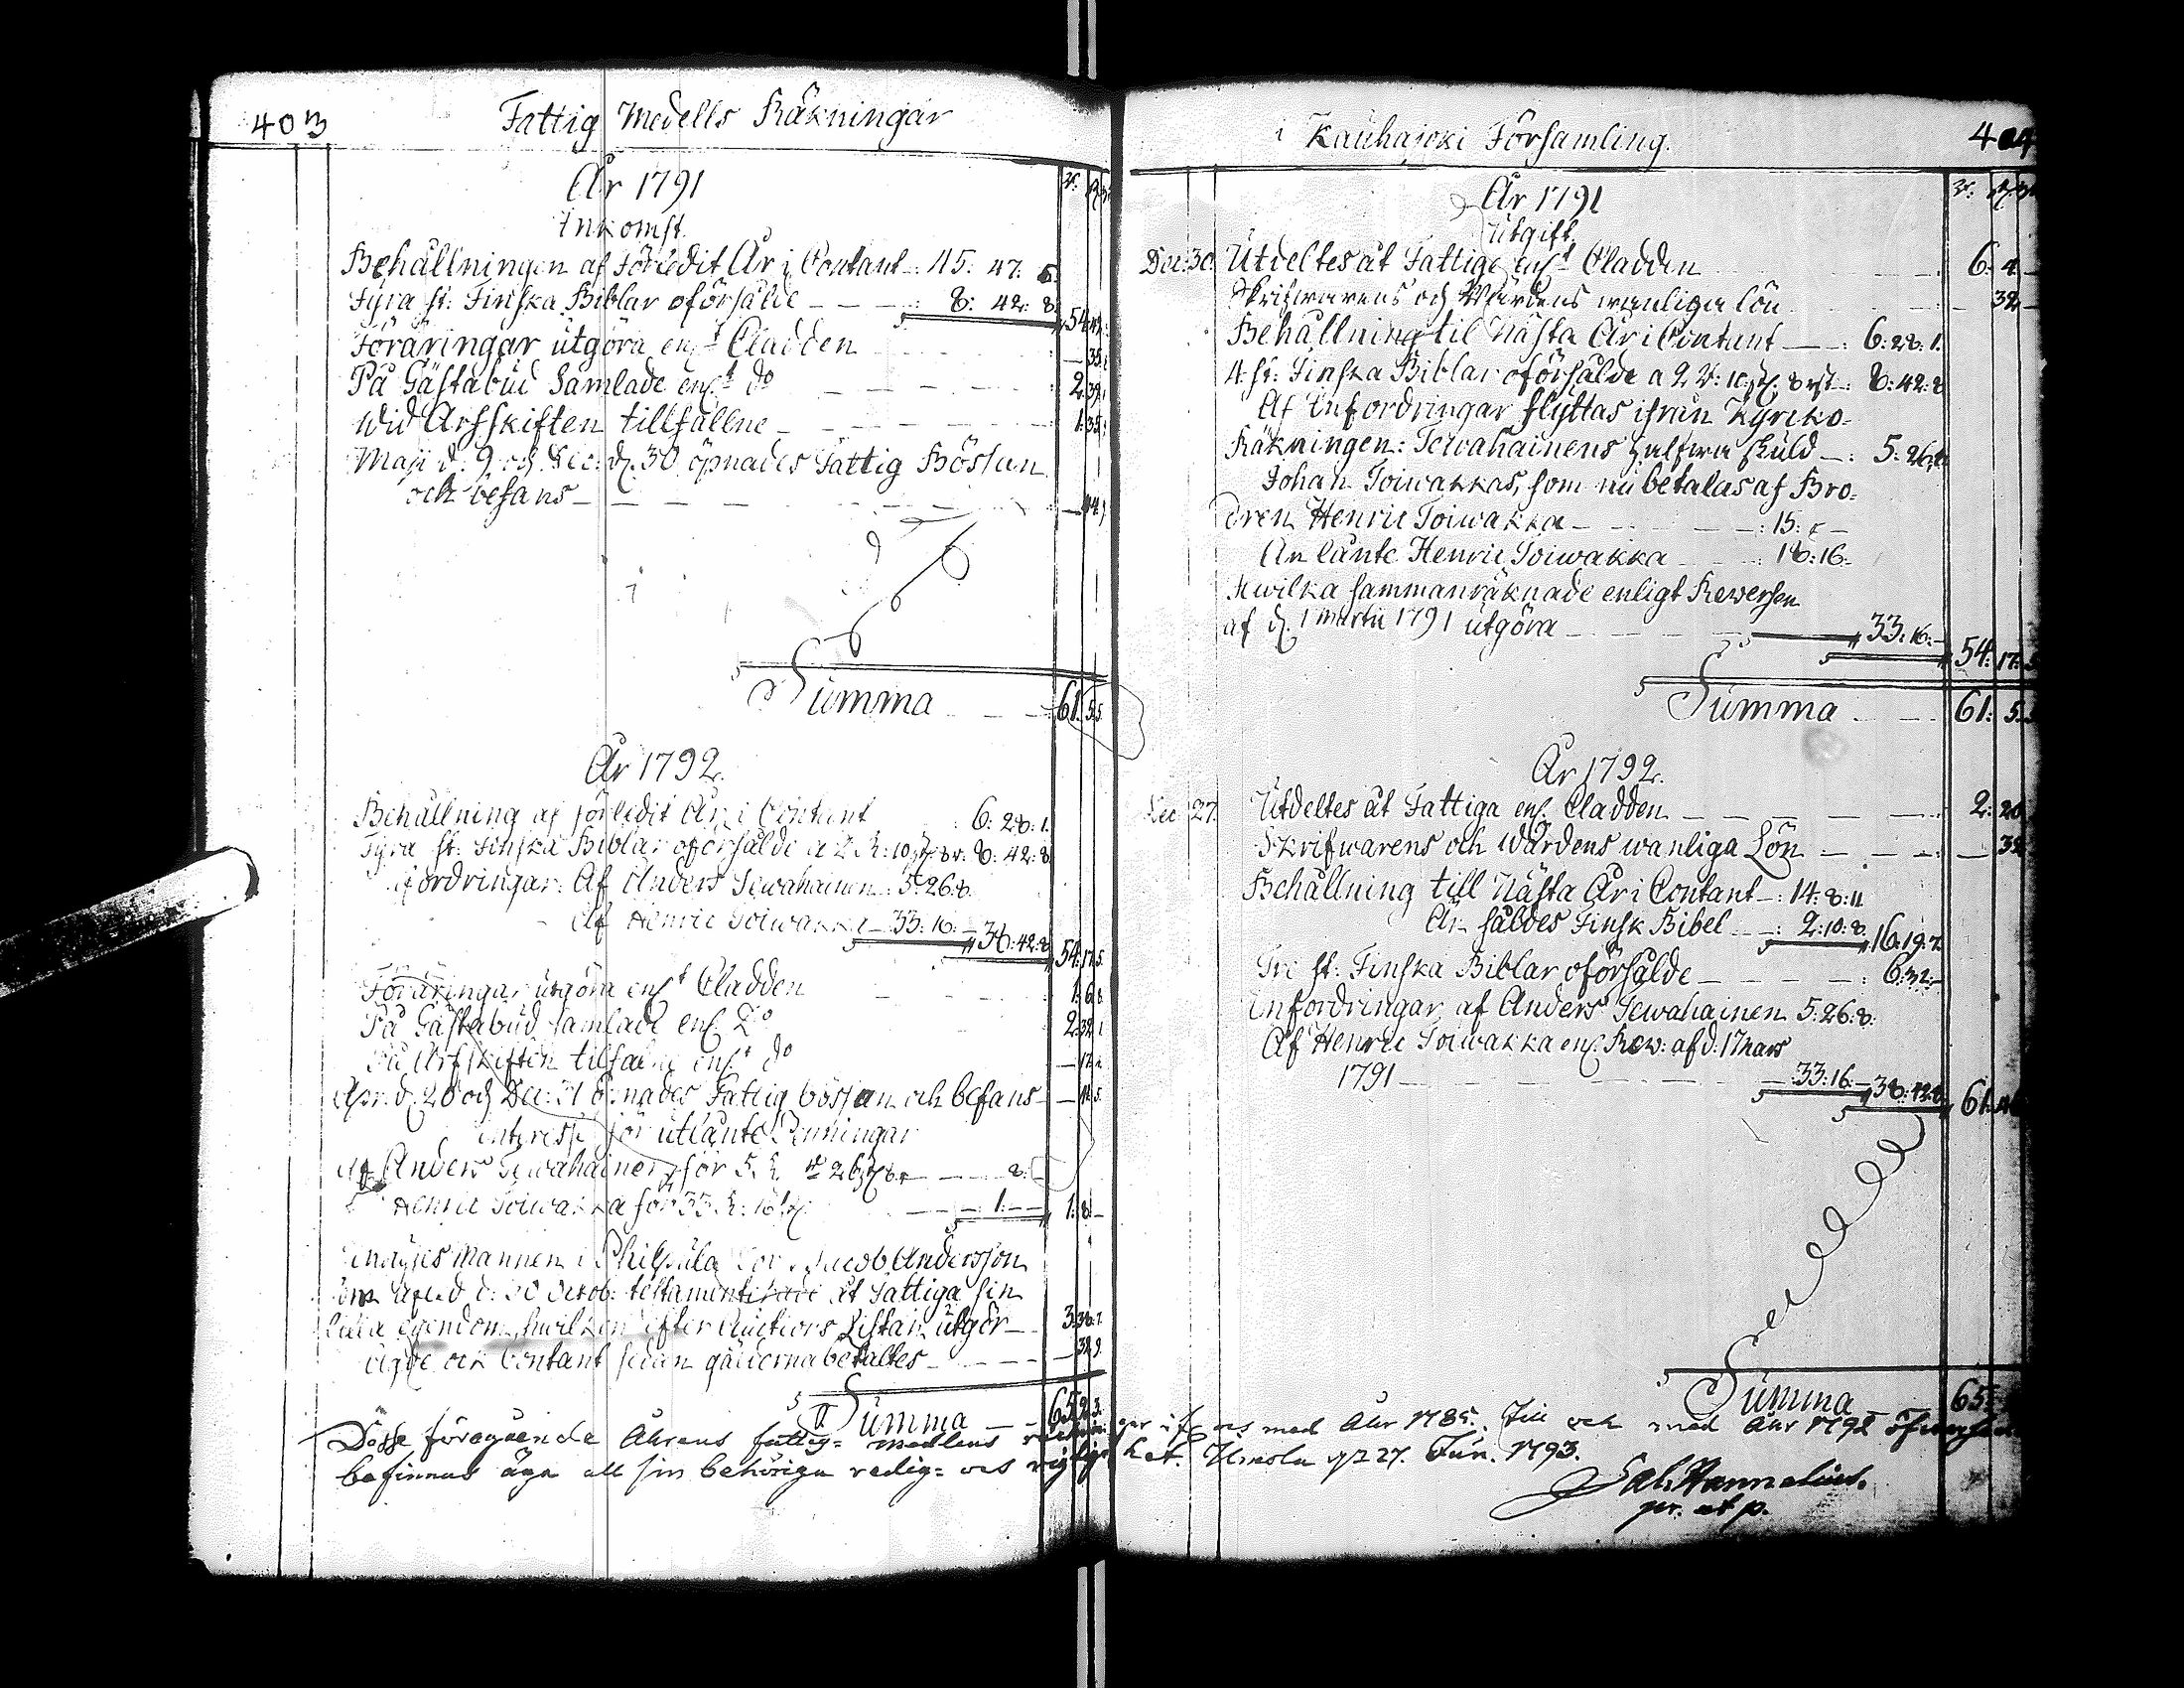 403
Fattig Medells Räkningar
År 1791
Inkomst.
Behållningen af Förledit År i Contant 45: 47:
Fyra st: Finska Biblar oförsålde 8: 42: 8
54: 42
Föräringar utgöra enl:t Cladden 35
På Gästabud Samlade enl:t do 2
Wid Arfskiften tillfallne 1: 35
Maji d: 9 och Dec: d. 30 öpnades Fattig Bössan
och befans 44
Summa 61: 5: 5
År 1792.
Behållning af förledit År i Contant 6: 28: 1.
Fyra st: Finska Biblar oförsålde a 2 R: 10 8: 42: 8
fordringar: Af Anders Tewahainen 5: 26: 8.
Af Henric Toiwakka 33: 16: 38: 42: 8 54: 17: 5.
Föräringar utgöra enl:t Cladden 1: 6: 8.
På Gästabud samlade enl. Do 2: 32: 1
På Arfskiften tilfalne enl:t do
Apr: d. 20 och Dec: 31 öpnades Fattig bössan och befans
interesse för utlånte Penningar
af Anders Tewahainen för 5 R. 26 8: —
Henric Toiwakka för 33 R: 16 1: — 1: 8: —
mannen i Philpula Jacob Andersson
d: 30 Octob: testamenterade åt Fattiga sin
lilla egendom, hwilken efter Auctions Listan utgör 3: 38: 7.
och Contant sedan gälderna betaltes
Summa 65:
Desse föregående Åhrens fattig= medlens räkningar ifrån och med Åhr 1785. Till och med Åhr 1792
befinnas äga all sin behöriga redig= och rigtighet. Ilmola 27. Jun. 1793.
Sal. Hannelius.
pr. et p.
i Kauhajoki Församling.
404
År 1791
Utgift
Dec: 30. Utdeltes åt Fattige enl:t Cladden 6: 4: —
Skrifwarens och Wårdens wanliga lön 32
Behållning til Nästa År i Contant 6: 28: 1.
4. st: Finska Biblar oförsålde a 2 R: 10 8 8: 42: 8
Af Infordringar flyttas ifrån Kyrcko=
Räkningen: Tewahainens halfwa skuld 5: 26: 8
Johan Toiwakkas, som nu betalas af Bro=
dren Henric Toiwakka 15: —
Än lånte Henric Toiwakka 18: 16: —
Hwilka sammanräknade enligt Rewersen
af d. 1 Martii 1791 utgöra 33: 16: — 54: 17: 5
Summa 61: 5:
År 1792.
Dec: 27. Utdeltes åt Fattiga enl. Cladden 2: 20
Skrifwarens och Wårdens wanliga Lön 32
Behållning till Nästa År i Contant 14: 8: 11
Än såldes Finsk Bibel 2: 10: 8. 16: 19: 7.
Tre st: Finska Biblar oförsålde 6: 32: —
Infordringar af Anders Tewahainen 5: 26: 8:
Af Henric Toiwakka enl. Rew: af d: 1 Mars
1791 33: 16: — 38: 42: 8. 61:
Summa 65: